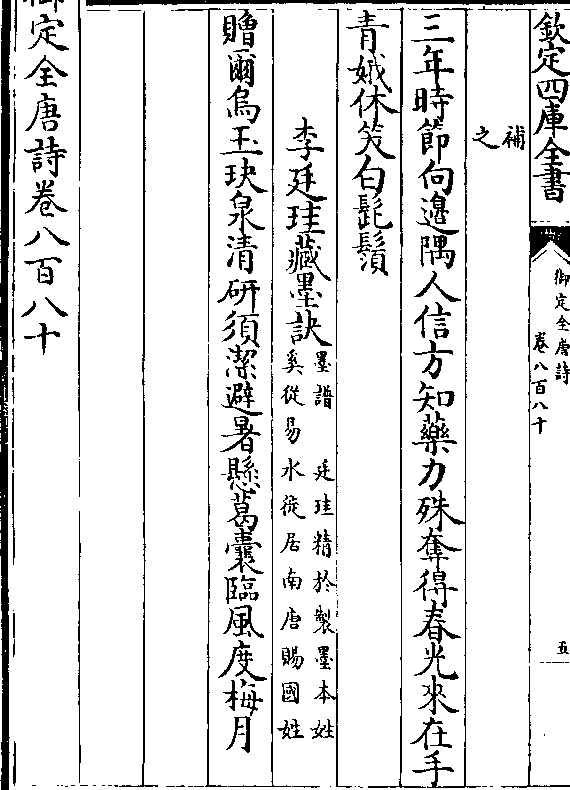 欽定四庫全書
御定全唐詩
卷八百八十
五
補
之
三年時節向邉隅人信方知藥力殊奪得春光來在手
青娥休笑白髭鬚
李廷珪藏墨訣
墨譜 廷珪精於製墨本姓
奚從易水徙居南唐賜國姓
贈爾烏玉玦泉清研須潔避暑懸葛囊臨風度梅月
御定全唐詩卷八百八十